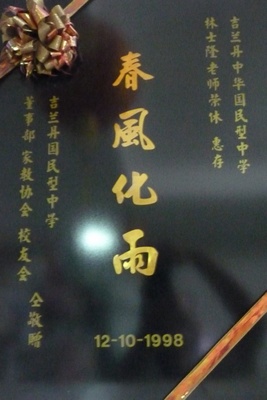 吉兰丹中华国民型中学
林士隆老师荣休 惠存
春風化雨
吉兰丹国民型中学
董事部 家教协会 校友会 仝敬赠
12-10-1998